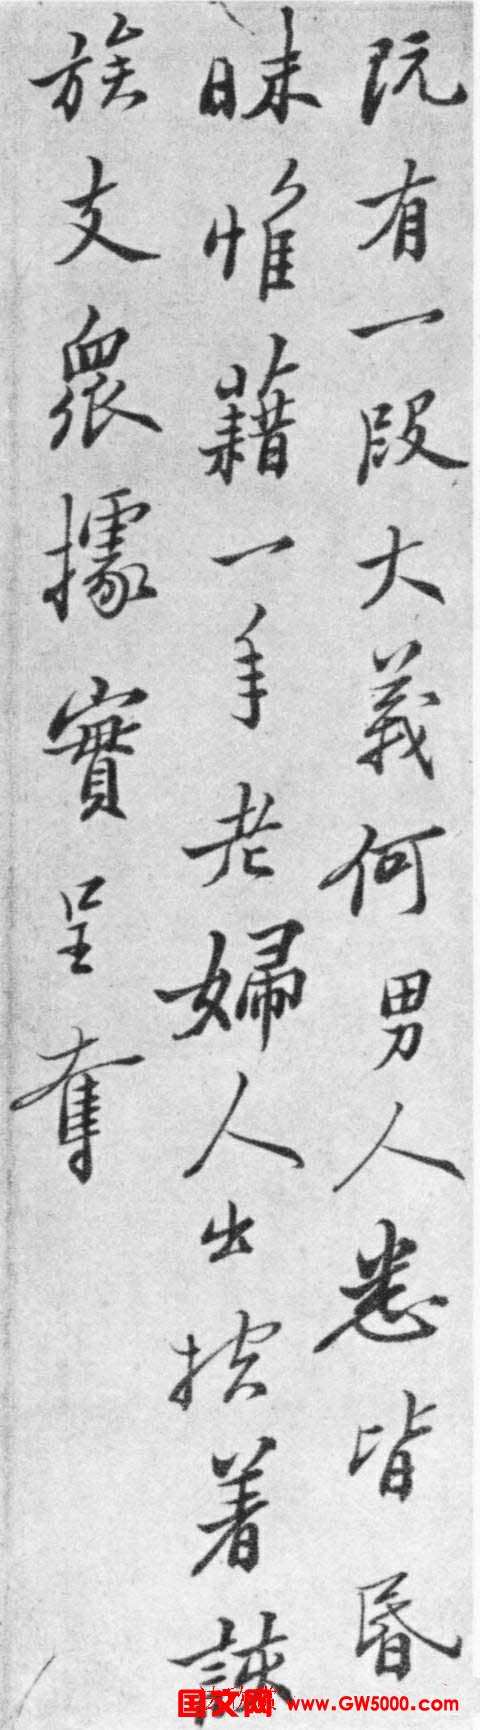 既有一段大義何男人悉皆昏
昧惟藉一手老婦人出控着該
族支衆據實呈奪
国文网 www.GW5000.com